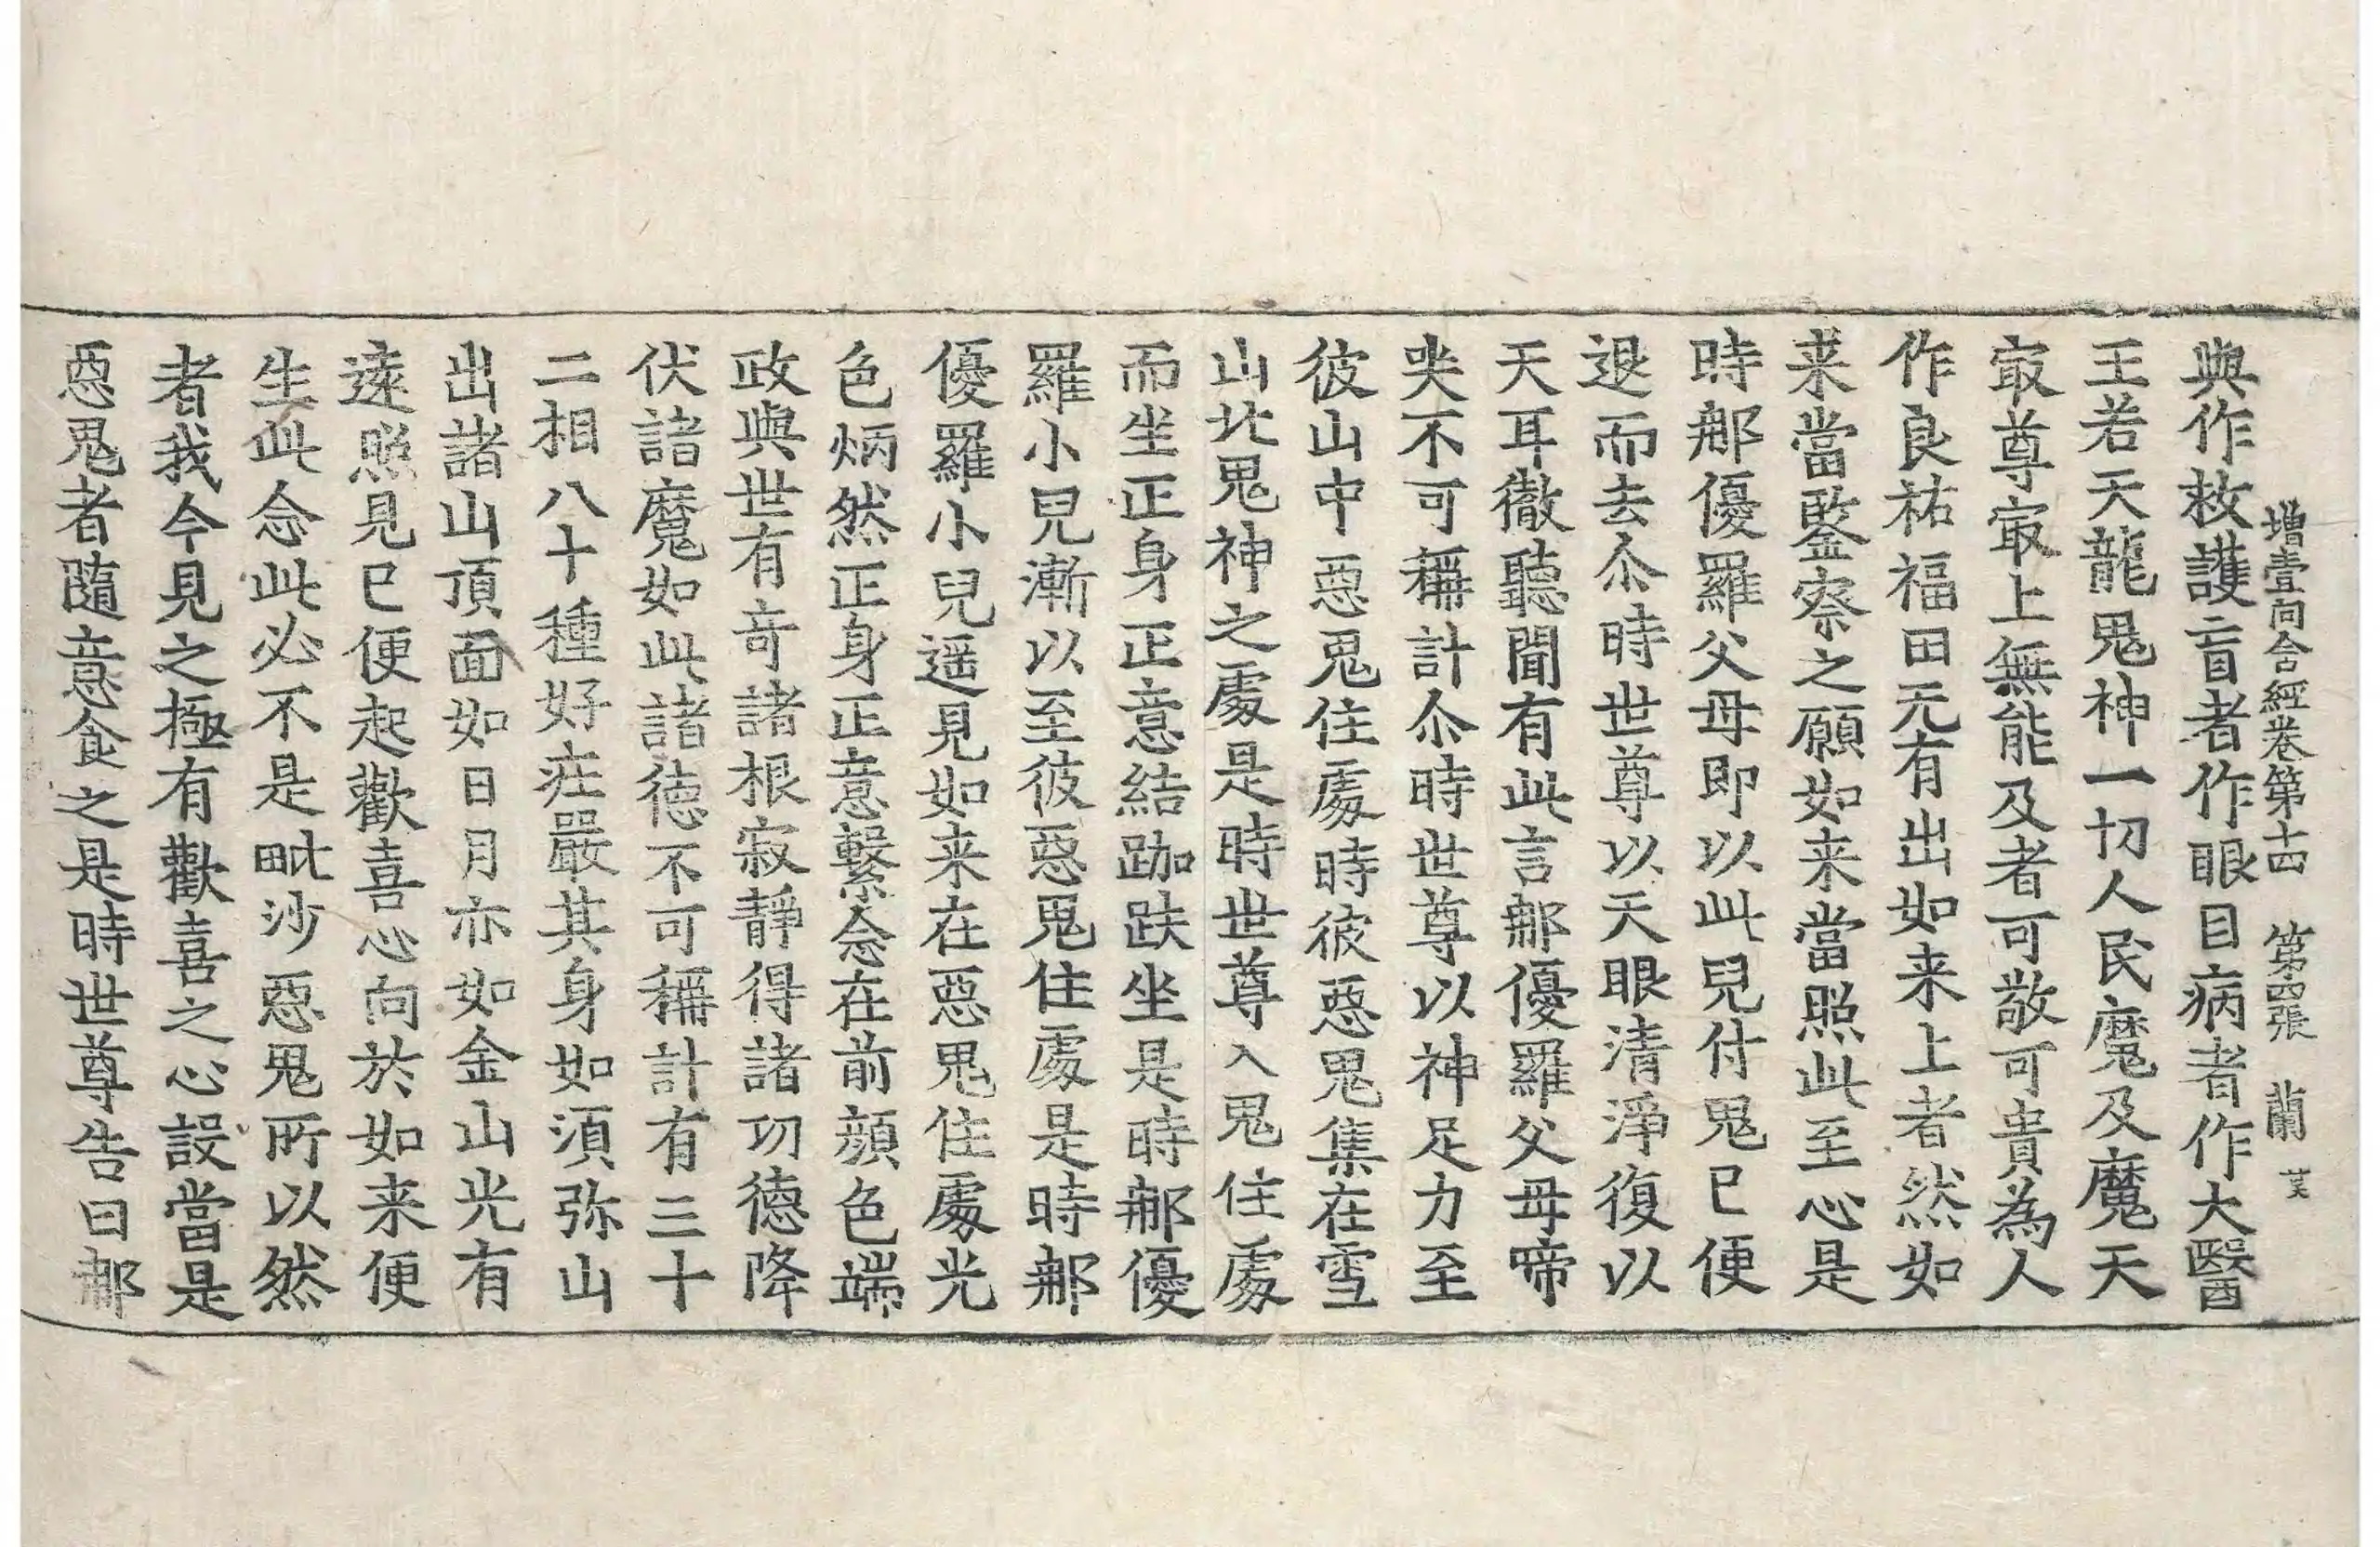 增壹阿含經卷第十四　第四張　蘭
與作救護盲者作眼目病者作大醫
王若天龍鬼神一切人民魔及魔天
㝡尊㝡上無能及者可敬可貴為人
作良祐福田无有出如来上者然如
来當鍳察之願如来當照此至心是
時那優羅父母即以此兒付鬼已便
退而去尒時世尊以天眼清淨復以
天耳徹聽聞有此言那優羅父母啼
哭不可稱計尒時世尊以神足力至
彼山中惡鬼住處時彼惡鬼集在雪
山北鬼神之處是時世尊入鬼住處
而坐正身正意結跏趺坐是時那優
羅小兒漸以至彼惡鬼住處是時那
優羅小兒遥見如来在惡鬼住處光
色炳然正身正意繫念在前顔色端
政與世有奇諸根寂靜得諸功德降
伏諸魔如此諸德不可稱計有三十
二相八十種好莊嚴其身如須弥山
出諸山頂面如日月亦如金山光有
遠照見已便起歡喜心向於如来便
生此念此必不是毗沙惡鬼所以然
者我今見之極有歡喜之心設當是
惡鬼者隨意食之是時世尊告曰那